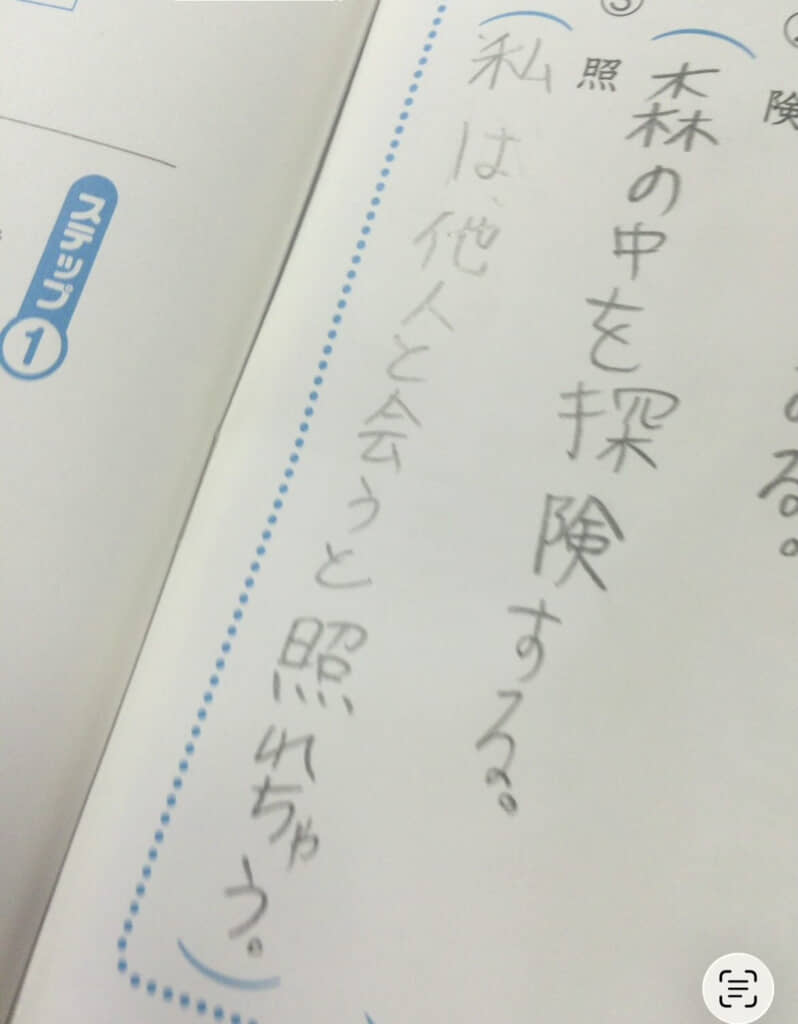 険
る。
森の中を探険する。
③
照
私は、他人と会うと照れちゃう。
ステップ
1